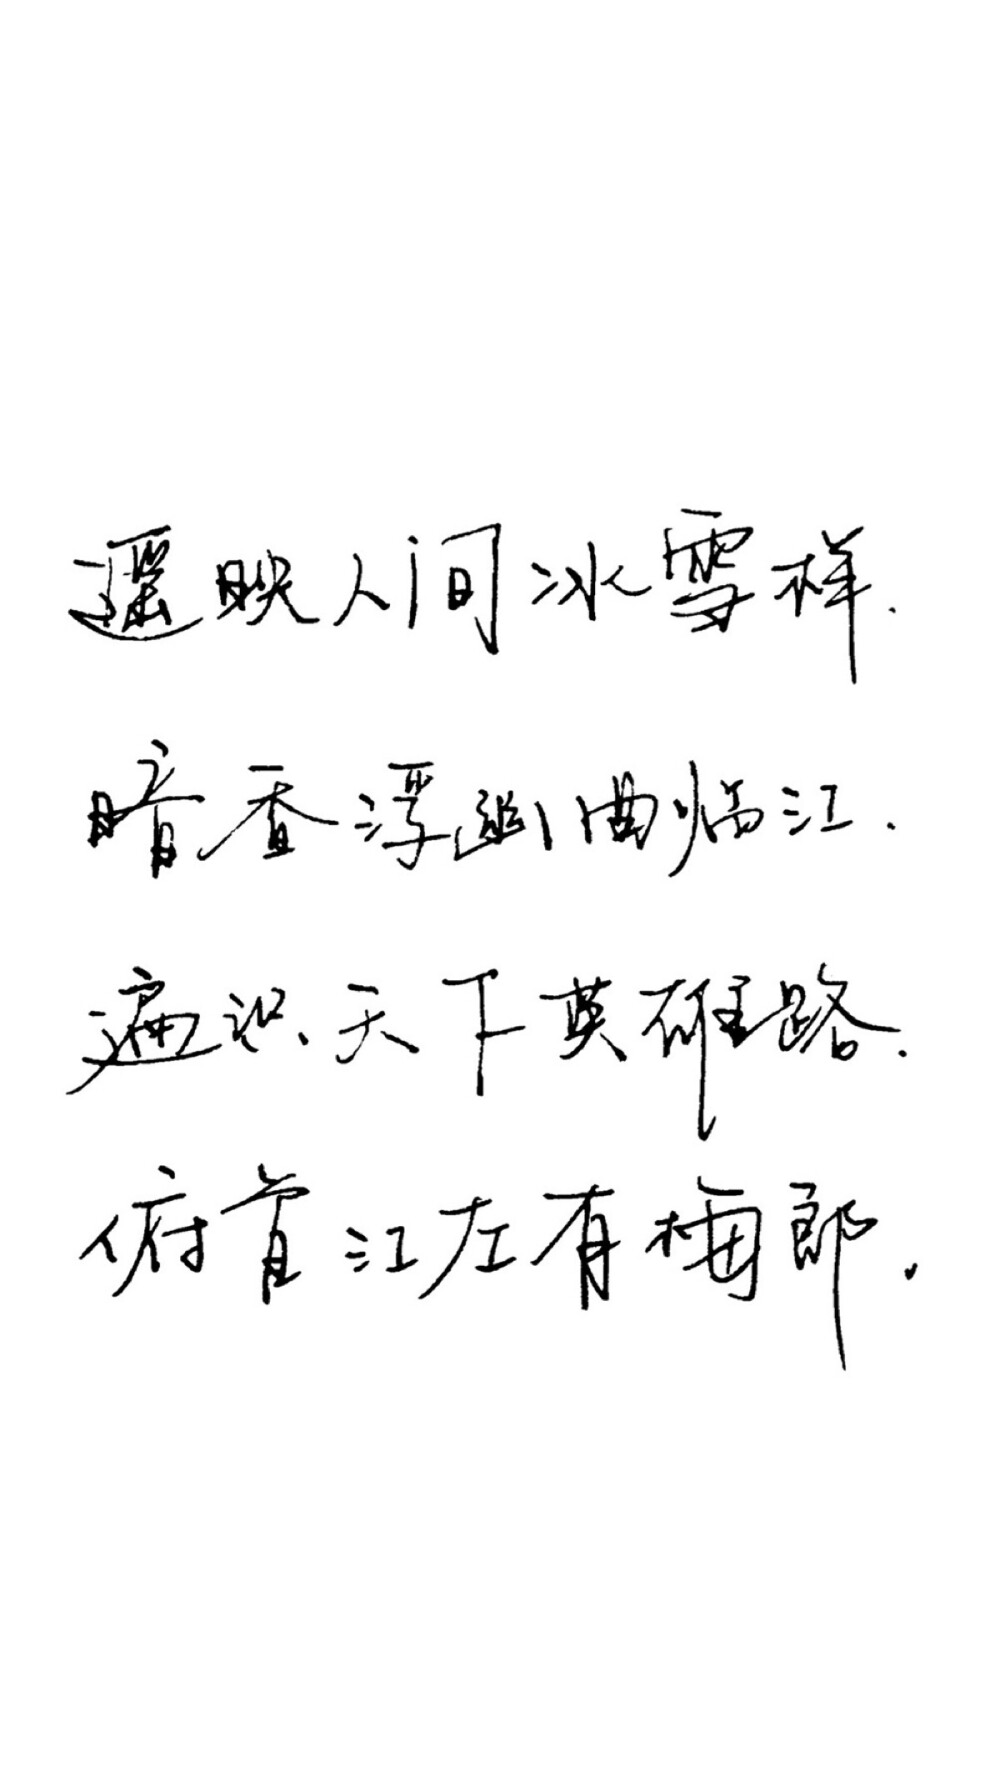 遥映人间冰雪样.
暗香浮幽曲临江.
遍识天下英雄路.
俯首江左有梅郎.